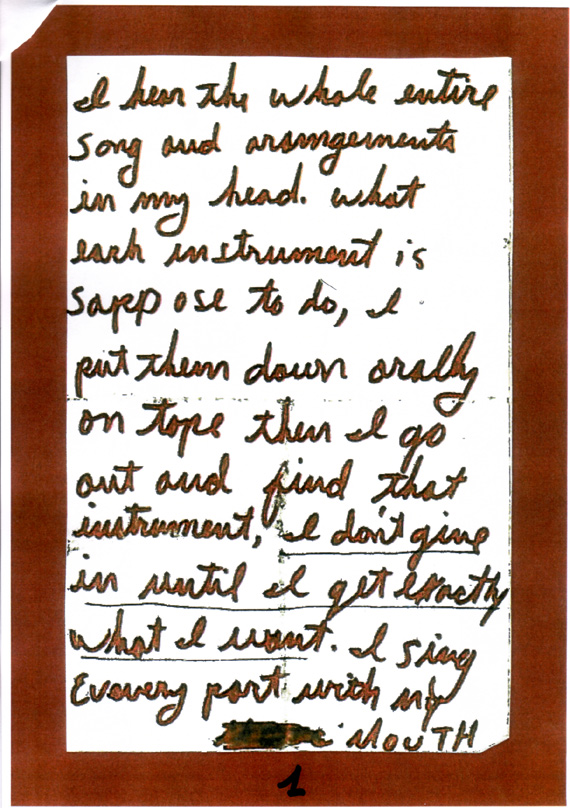 I hear the whole entire
song and arangements
in my head. what
each instrument is
suppose to do, I
put them down orally
on tape then I go
out and find that
instrument, I don't give
in until I get exactly
what I want. I sing
Evavery part with my
MOUTH
1